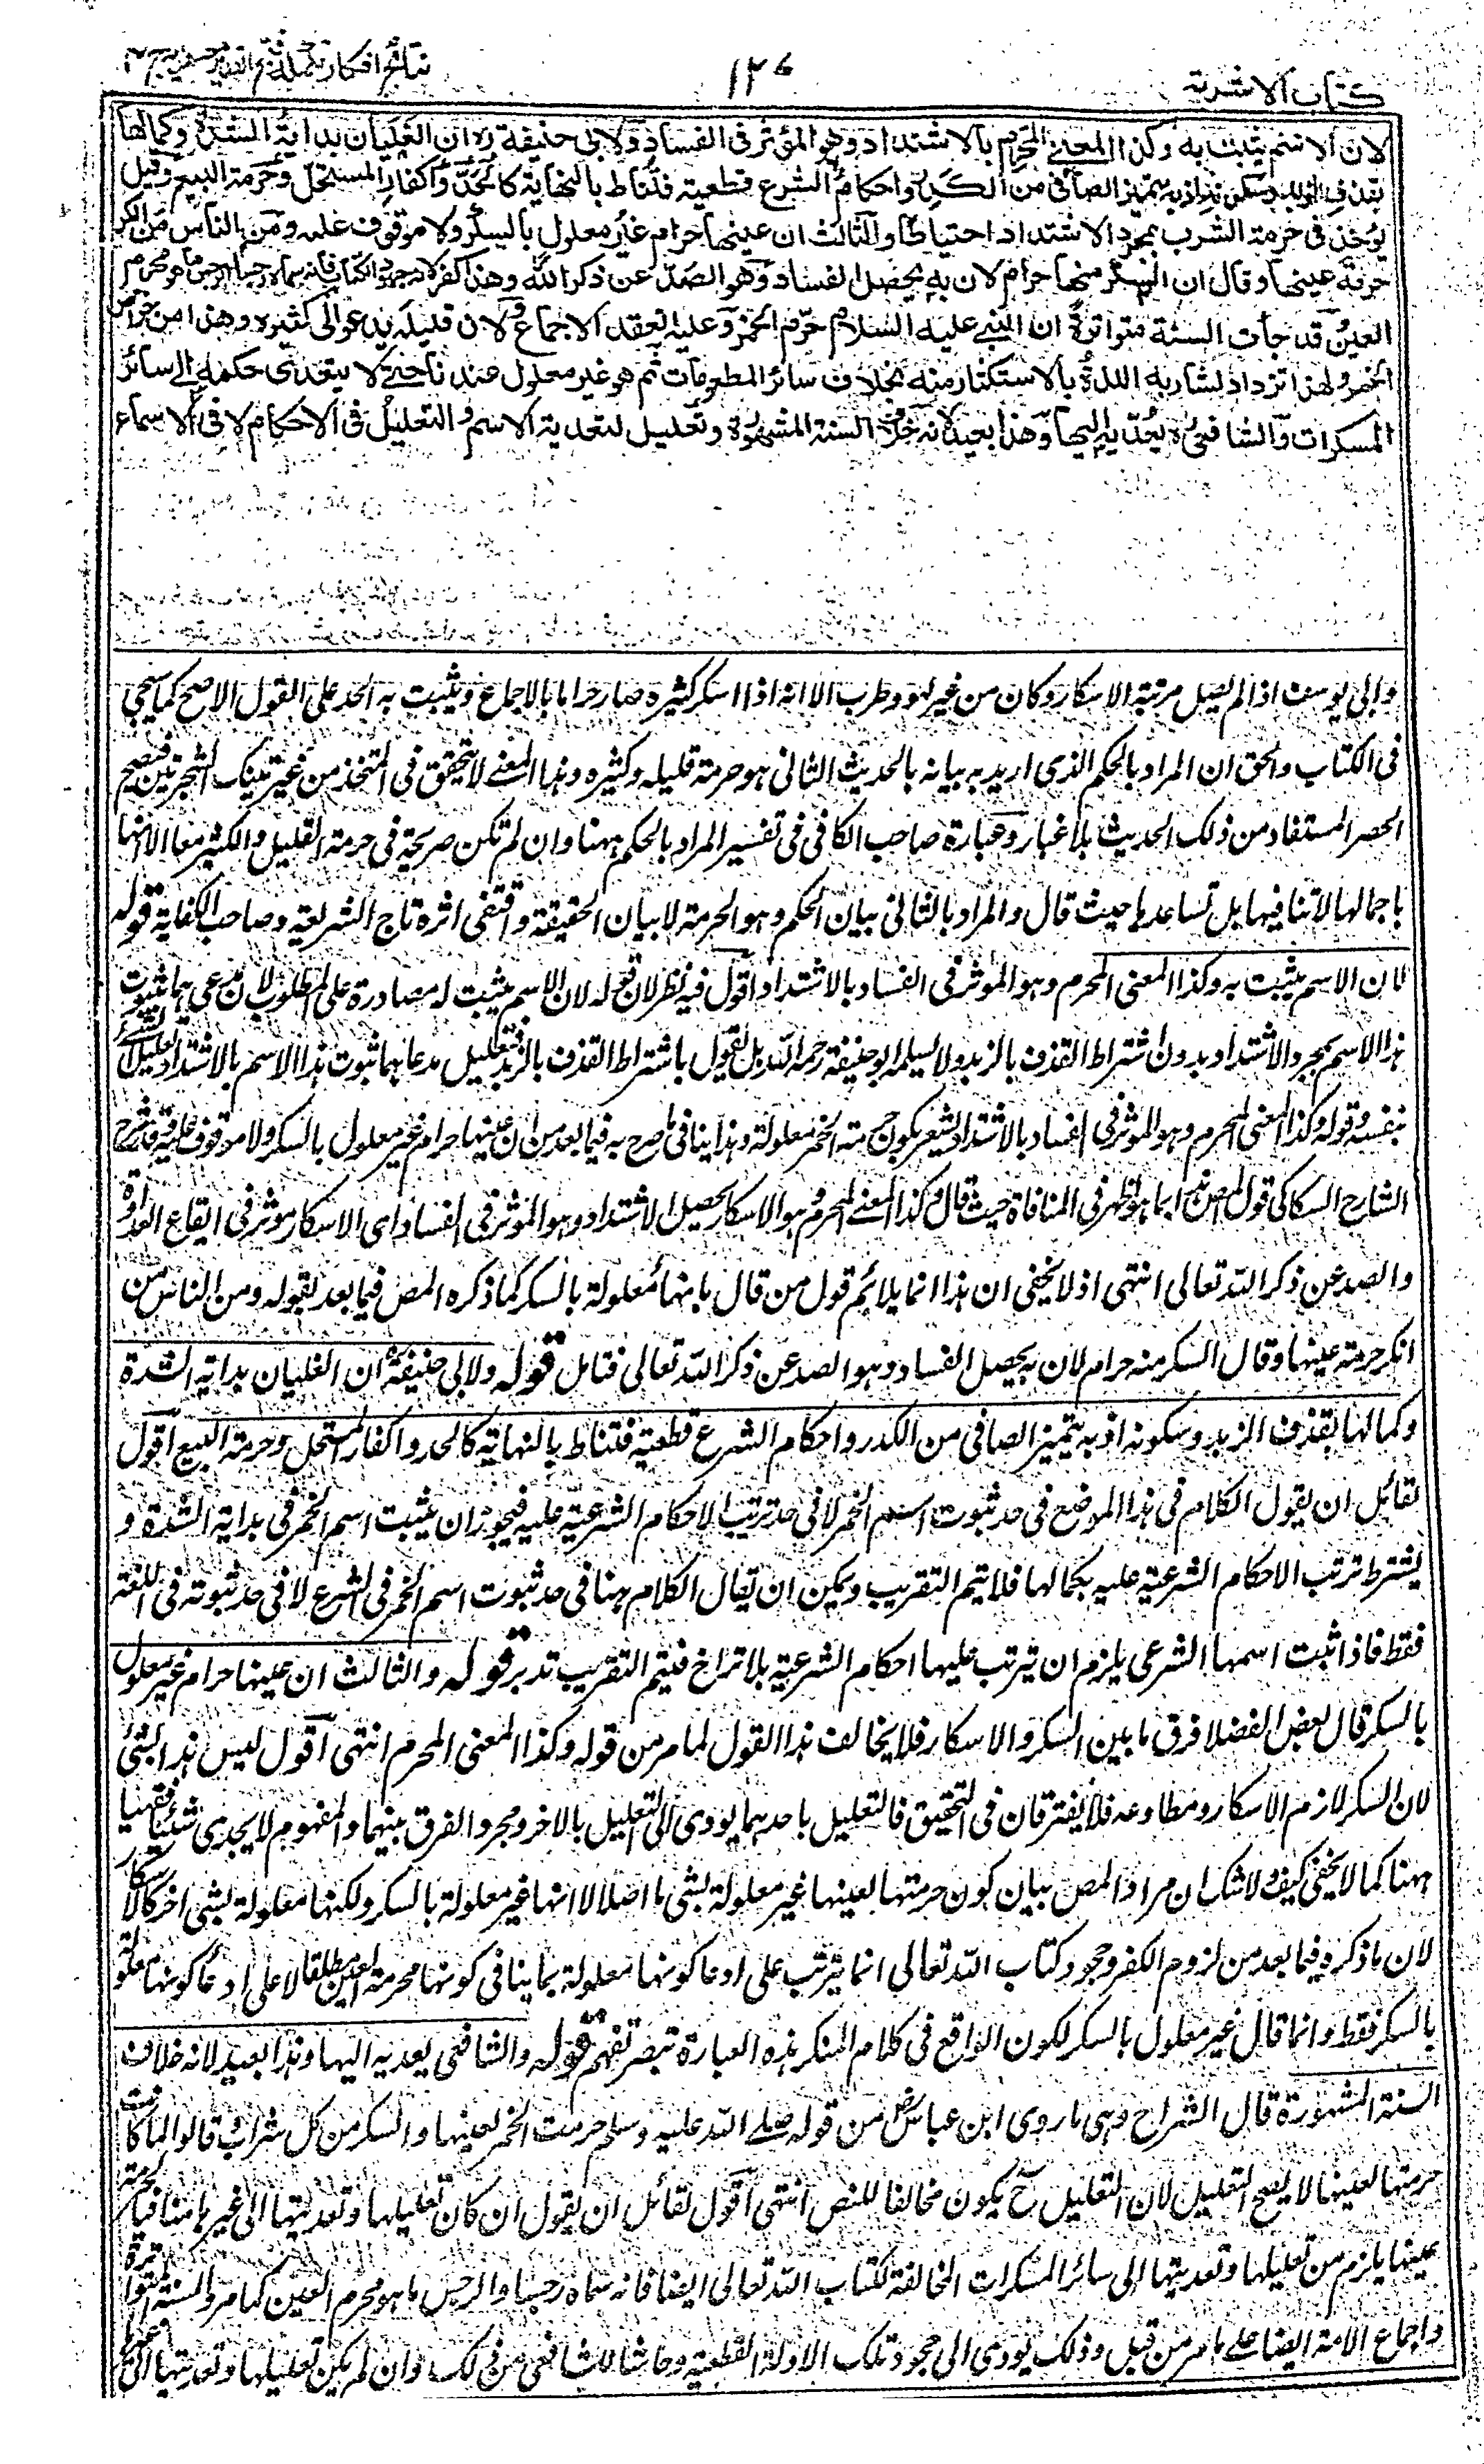 كتاب الاشربة
١٢٧
نتائج افكار تكملة فتح القدير
لان الاسم يثبت به وكذا المعنى المحرم بالاشتداد وهو المؤثر فى الفساد ولابى حنيفة ره ان الغليان بداية الشدة وكمالها
بقذف الزبد وسكونه اذ به يتميز الصافى من الكدر واحكام الشرع قطعية فتناط بالنهاية كالحد واكفار المستحل وحرمة البيع وقيل
يؤخذ فى حرمة الشرب بمجرد الاشتداد احتياطا والثالث ان عينها حرام غير معلول بالسكر ولا موقوف عليه ومن الناس من انكر
حرمة عينها وقال ان السكر منها حرام لان به يحصل الفساد وهو الصد عن ذكر الله وهذا كفر لانه جحود الكتاب فانه سماه رجسا والرجس ما هو محرم
العين وقد جاءت السنة متواترة ان النبى عليه السلام حرم الخمر وعليه انعقد الاجماع ولان قليله يدعو الى كثيره وهذا من خواص
الخمر ولهذا تزداد لشاربه اللذة بالاستكثار منه بخلاف سائر المطعومات ثم هو غير معلول عندنا حتى لا يتعدى حكمه الى سائر
المسكرات والشافعى ره يعديه اليها وهذا بعيد لانه خلاف السنة المشهورة وتعليل لتعدية الاسم والتعليل فى الاحكام لا فى الاسماء
وابى يوسف اذا لم يصل مرتبة الاسكار وكان من غير لهو وطرب الا انه اذا اسكر كثيره صار حراما بالاجماع ويثبت به الحد على القول الاصح كما سيجى
فى الكتاب والحق ان المراد بالحكم الذى اريد به بيانه بالحديث الثانى هو حرمة قليله وكثيره وهذا المعنى لا يتحقق فى المتخذ من غير تينك الشجرتين فيصح
الحصر المستفاد من ذلك الحديث بلا غبار وعبارة صاحب الكافى فى تفسير المراد بالحكم ههنا وان لم تكن صريحة فى حرمة القليل والكثير معا الا انها
باجمالها لا تنافيها بل تساعدها حيث قال والمراد بالثانى بيان الحكم وهو الحرمة لا بيان الحقيقة واقتفى اثره تاج الشريعة وصاحب الكفاية قوله
لان الاسم يثبت به وكذا المعنى المحرم وهو الموثر فى الفساد بالاشتداد اقول فيه نظر لان قوله لان الاسم يثبت له مصادرة على المطلوب لان مدعى هما ثبوت
هذا الاسم بمجرد الاشتداد بدون اشتراط القذف بالزبد ولا يسلمه ابوحنيفة رحمه الله بل يقول باشتراط القذف بالزبد فتعليل مدعاهما ثبوت هذا الاسم بالاشتداد تعليل الشئ
بنفسه وقوله وكذا المعنى المحرم وهو الموثر فى الفساد بالاشتداد يشعر بكون حرمة الخمر معلولة وهذا ينافى ما صرح به فيما بعد من ان عينها حرام غير معلول بالسكر ولا موقوف عليه وقد شرح
الشارح السكاكى قول المص هذا بما هو اظهر فى المنافاة حيث قال وكذا المعنى المحرم وهو الاسكار يحصل بالاشتداد وهو الموثر فى الفساد اى الاسكار موثر فى ايقاع العداوة
والصد عن ذكر الله تعالى انتهى اذ لا يخفى ان هذا انما يلائم قول من قال بانها معلولة بالسكر كما ذكره المص فيما بعد بقوله ومن الناس من
انكر حرمة عينها وقال السكر منه حرام لان به يحصل الفساد وهو الصد عن ذكر الله تعالى فتامل قوله ولابى حنيفة ان الغليان بداية الشدة
وكمالها بقذف الزبد وسكونه اذ به يتميز الصافى من الكدر واحكام الشرع قطعية فتناط بالنهاية كالحد واكفار المستحل وحرمة البيع اقول
لقائل ان يقول الكلام فى هذا الموضع فى حد ثبوت اسم الخمر لا فى حد ترتب الاحكام الشرعية عليه فيجوز ان يثبت اسم الخمر فى بداية الشدة و
يشترط ترتب الاحكام الشرعية عليه بكمالها فلا يتم التقريب ويمكن ان يقال الكلام ههنا فى حد ثبوت اسم الخمر فى الشرع لا فى حد ثبوته فى اللغة
فقط فاذا ثبت اسمها الشرعى يلزم ان يترتب عليها احكام الشرعية بلا تراخ فيتم التقريب تدبر قوله والثالث ان عينها حرام غير معلول
بالسكر قال بعض الفضلا فرق ما بين السكر والاسكار فلا يخالف هذا القول لما مر من قوله وكذا المعنى المحرم انتهى اقول ليس هذا بشئ
لان السكر لازم الاسكار ومطاوعه فلا يفترقان فى التحقيق فالتعليل باحدهما يودى الى التعليل بالاخر ومجرد الفرق بينهما فى المفهوم لا يجدى شئيا فقهيا
ههنا كما لا يخفى كيف ولا شك ان مراد المص بيان كون حرمتها بعينها غير معلولة بشى ما اصلا لا انها غير معلولة بالسكر ولكنها معلولة بشى اخر كالاسكار
لان ما ذكره فيما بعد من لزوم الكفر وجحود كتاب الله تعالى انما يترتب على ادعا كونها معلولة بما ينافى كونها محرمة العين مطلقا لا على ادعا كونها معلولة
بالسكر فقط وانما قال غير معلول بالسكر لكون الواقع فى كلام المنكر هذه العبارة تبصر تفهم قوله والشافعى يعديه اليها وهذا بعيد لانه خلاف
السنة المشهورة قال الشراح وهى ما روى ابن عباس رض من قوله صلى الله عليه وسلم حرمت الخمر لعينها والسكر من كل شراب قالوا لما كانت
حرمتها لعينها لا يصح التعليل لان التعليل ح يكون مخالفا للنص انتهى اقول لقائل ان يقول ان كان تعليلها وتعديتها الى غيرها منافيا لحرمة
عينها يلزم من تعليلها وتعديتها الى سائر المسكرات المخالفة لكتاب الله تعالى ايضا فانه سماه رجسا والرجس ما هو محرم العين كما مر والسنة المتواترة
واجماع الامة ايضا على ما مر من قبل وذلك يودى الى جحود تلك الادلة القطعية وحاشا للشافعى من ذلك وان لم يكن تعليلها وتعديتها الى